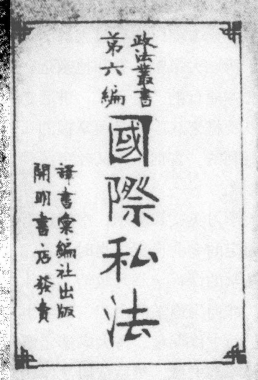 政法叢書
第六編
國際私法
譯書彙編社出版
開明書店發賣